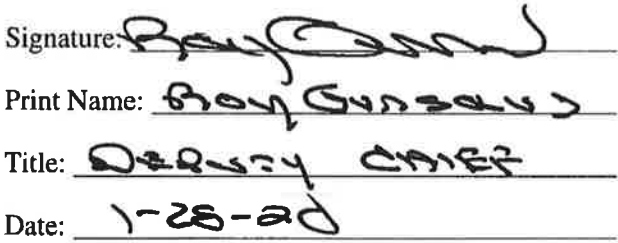 Signature: Ray
Print Name: Ray Gonsalves
Title: Deputy CHIEF
Date: 1-28-20